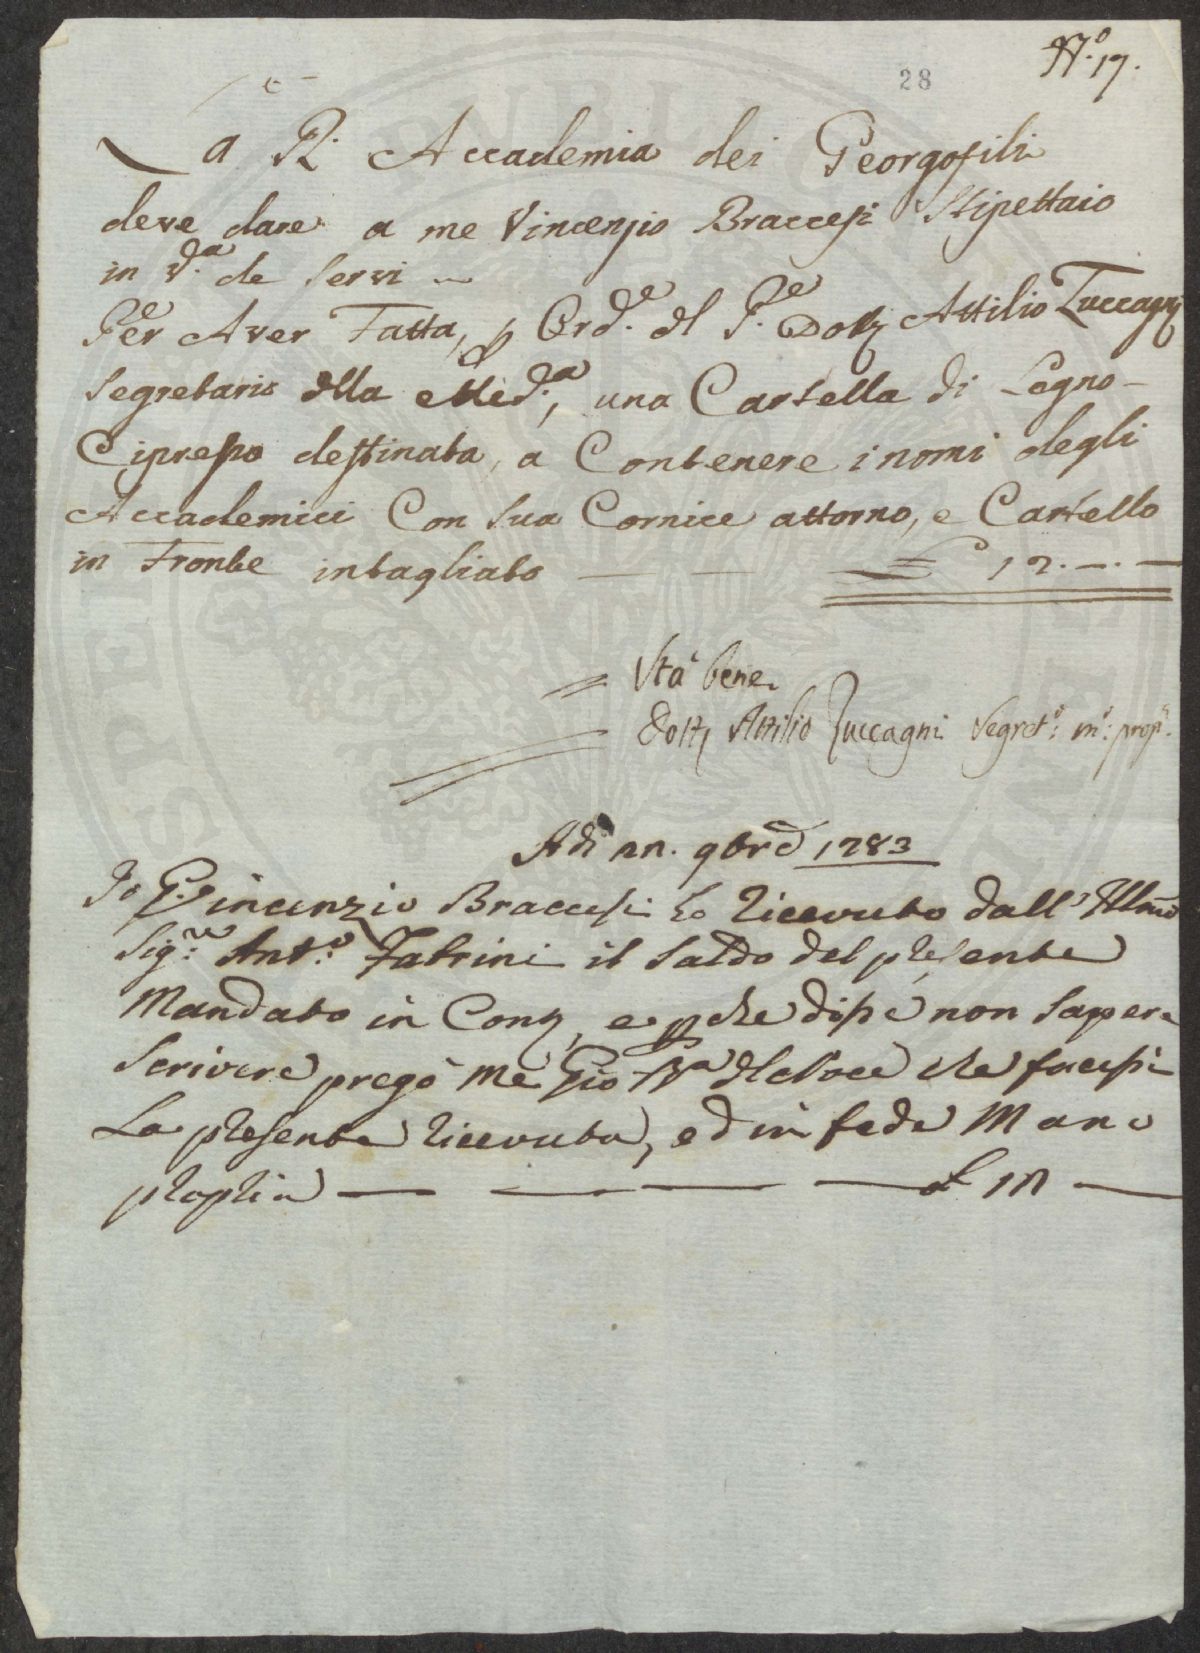 N.º 17.
28
La R. Accademia dei Georgofili
deve dare a me Vincenzio Braccesi Stipettaio
in V.ª de Servi
Per Aver Fatta, p Ord.e del S.e Dott Attilio Zuccagni
Segretario della Med.ª, una Cartella di Legno
Cipresso destinata, a Contenere i nomi degli
Accademici Con sua Cornice attorno, e Cartello
in Fronte intagliato — — £ 12.—.—
Stà bene
Dott Attilio Zuccagni Segret.º m.º prop.º
Adi 22. 9bre 1783
Io Vincenzio Braccesi ho ricevuto dall' Illmo
Sig.re Ant.º Fabrini il Saldo del presente
Mandato in Cont, e pche disse non Sapere
Scrivere pregò me Gio che facessi
La presente ricevuta, ed in fede Mano
propria — — — — £ 12 —